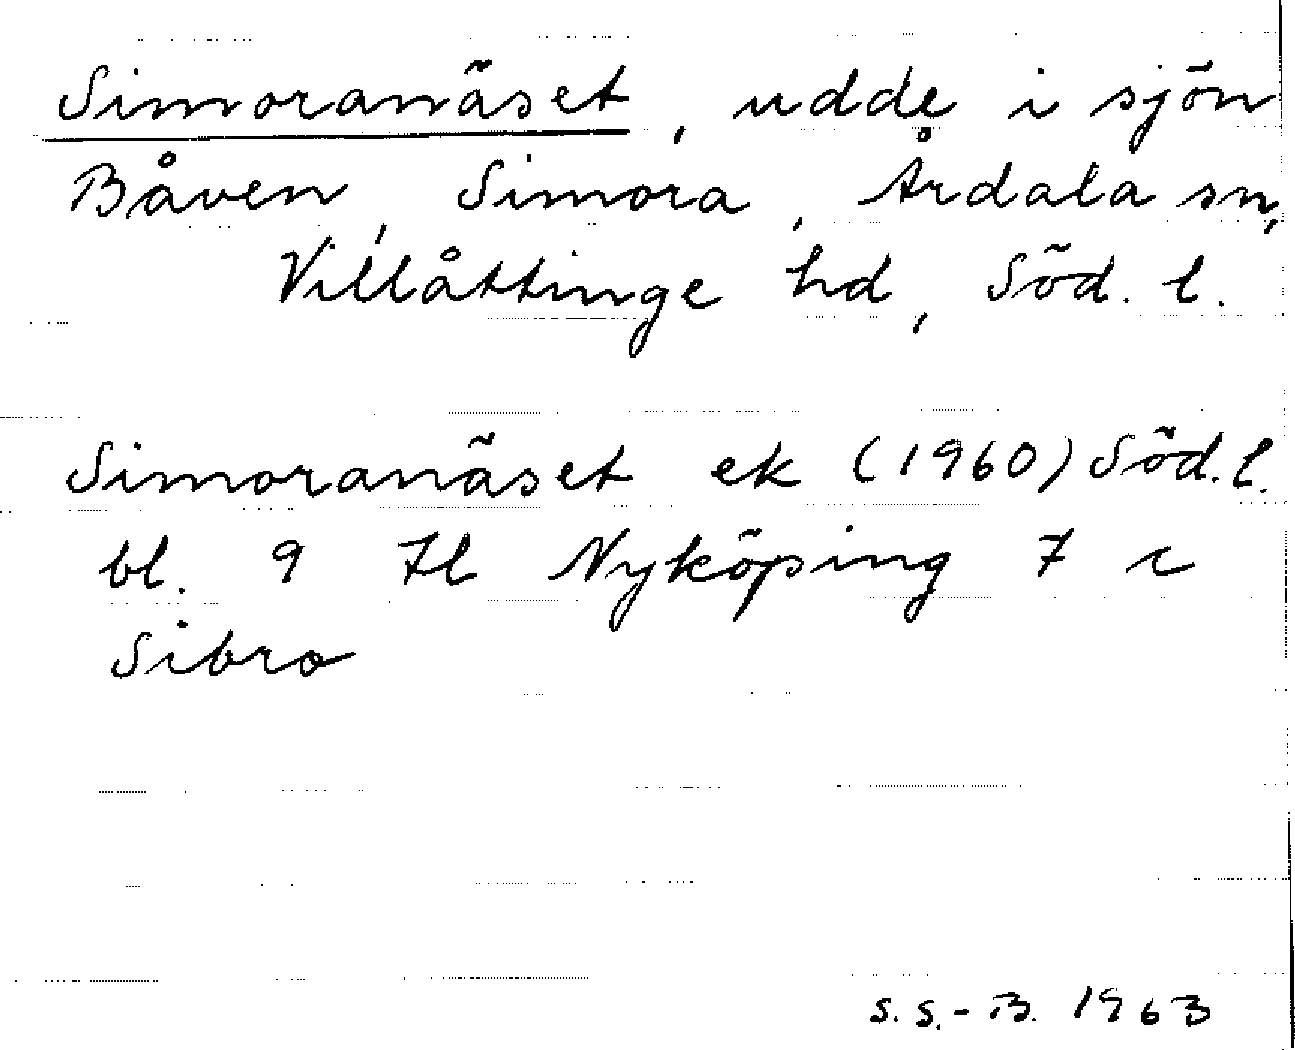 Simoranäset, udde i sjön
Båven, Simora, Årdala sn,
Villåttinge hd, Söd. l.
Simoranäset ek (1960) Söd. l.
bl. 9 Il Nyköping 7 c
Sibro
S. S.-B. 1963